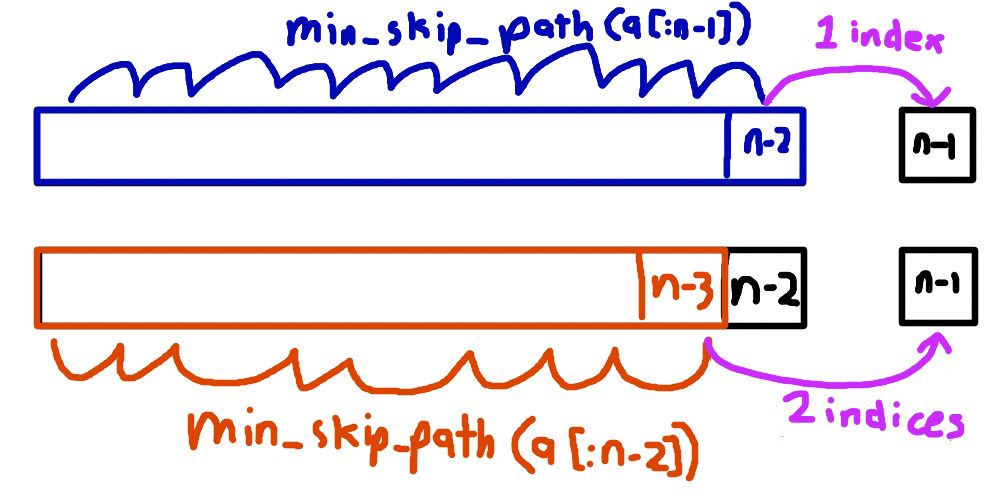 min_skip_path (a[:n-1])
1 index
n-2
n-1
n-3
n-2
n-1
2 indices
min_skip_path (a[:n-2])